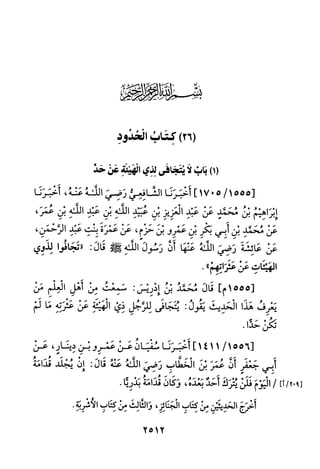 بسم الله الرحمن الرحيم
(٢٦) كِتَابُ الْحُدُودِ
(١) بَابٌ لَا يُتَجَافَى لِذِي الْهَيْئَةِ عَنْ حَدٍّ
[١٧٠٥/١٥٥٥] أَخْبَرَنَا الشَّافِعِيُّ رَضِيَ اللَّهُ عَنْهُ، أَخْبَرَنَا
إِبْرَاهِيمُ بْنُ مُحَمَّدٍ عَنْ عَبْدِ الْعَزِيزِ بْنِ عُبَيْدِ اللَّهِ بْنِ عَبْدِ اللَّهِ بْنِ عُمَرَ،
عَنْ مُحَمَّدِ بْنِ أَبِي بَكْرِ بْنِ عَمْرِو بْنِ حَزْمٍ، عَنْ عَمْرَةَ بِنْتِ عَبْدِ الرَّحْمَنِ،
عَنْ عَائِشَةَ رَضِيَ اللَّهُ عَنْهَا أَنَّ رَسُولَ اللَّهِ ﷺ قَالَ: «تَجَافَوْا لِذَوِي
الْهَيْئَاتِ عَنْ عَثَرَاتِهِمْ».
[١٥٥٥م] قَالَ مُحَمَّدُ بْنُ إِدْرِيسَ: سَمِعْتُ مِنْ أَهْلِ الْعِلْمِ مَنْ
يَعْرِفُ هَذَا الْحَدِيثَ يَقُولُ: يُتَجَافَى لِلرَّجُلِ ذِي الْهَيْئَةِ عَنْ عَثْرَتِهِ مَا لَمْ
تَكُنْ حَدًّا.
[١٤١١/١٥٥٦] أَخْبَرَنَا سُفْيَانُ عَنْ عَمْرِو بْنِ دِينَارٍ، عَنْ
أَبِي جَعْفَرٍ أَنَّ عُمَرَ بْنَ الْخَطَّابِ رَضِيَ اللَّهُ عَنْهُ قَالَ: إِنْ يُجْلَدْ قُدَامَةُ
[٢٠٩/أ] / الْيَوْمَ فَلَنْ يُتْرَكَ أَحَدٌ بَعْدَهُ، وَكَانَ قُدَامَةُ بَدْرِيًّا.
أَخْرَجَ الْحَدِيثَيْنِ مِنْ كِتَابِ الْجَنَائِزِ، وَالثَّالِثَ مِنْ كِتَابِ الْأَشْرِبَةِ.
٢٥١٢